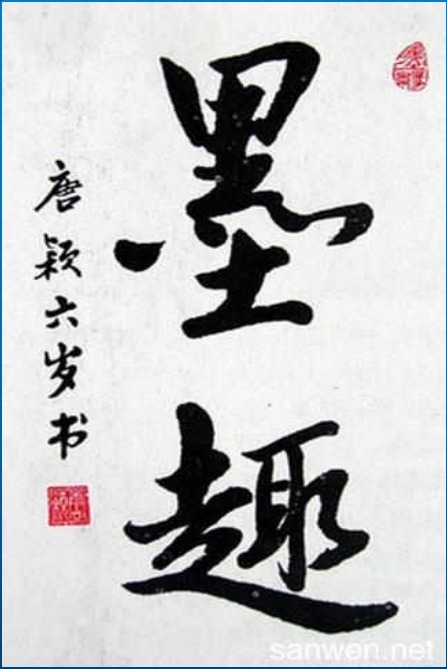 墨趣
唐颖六岁书
sanwen.net